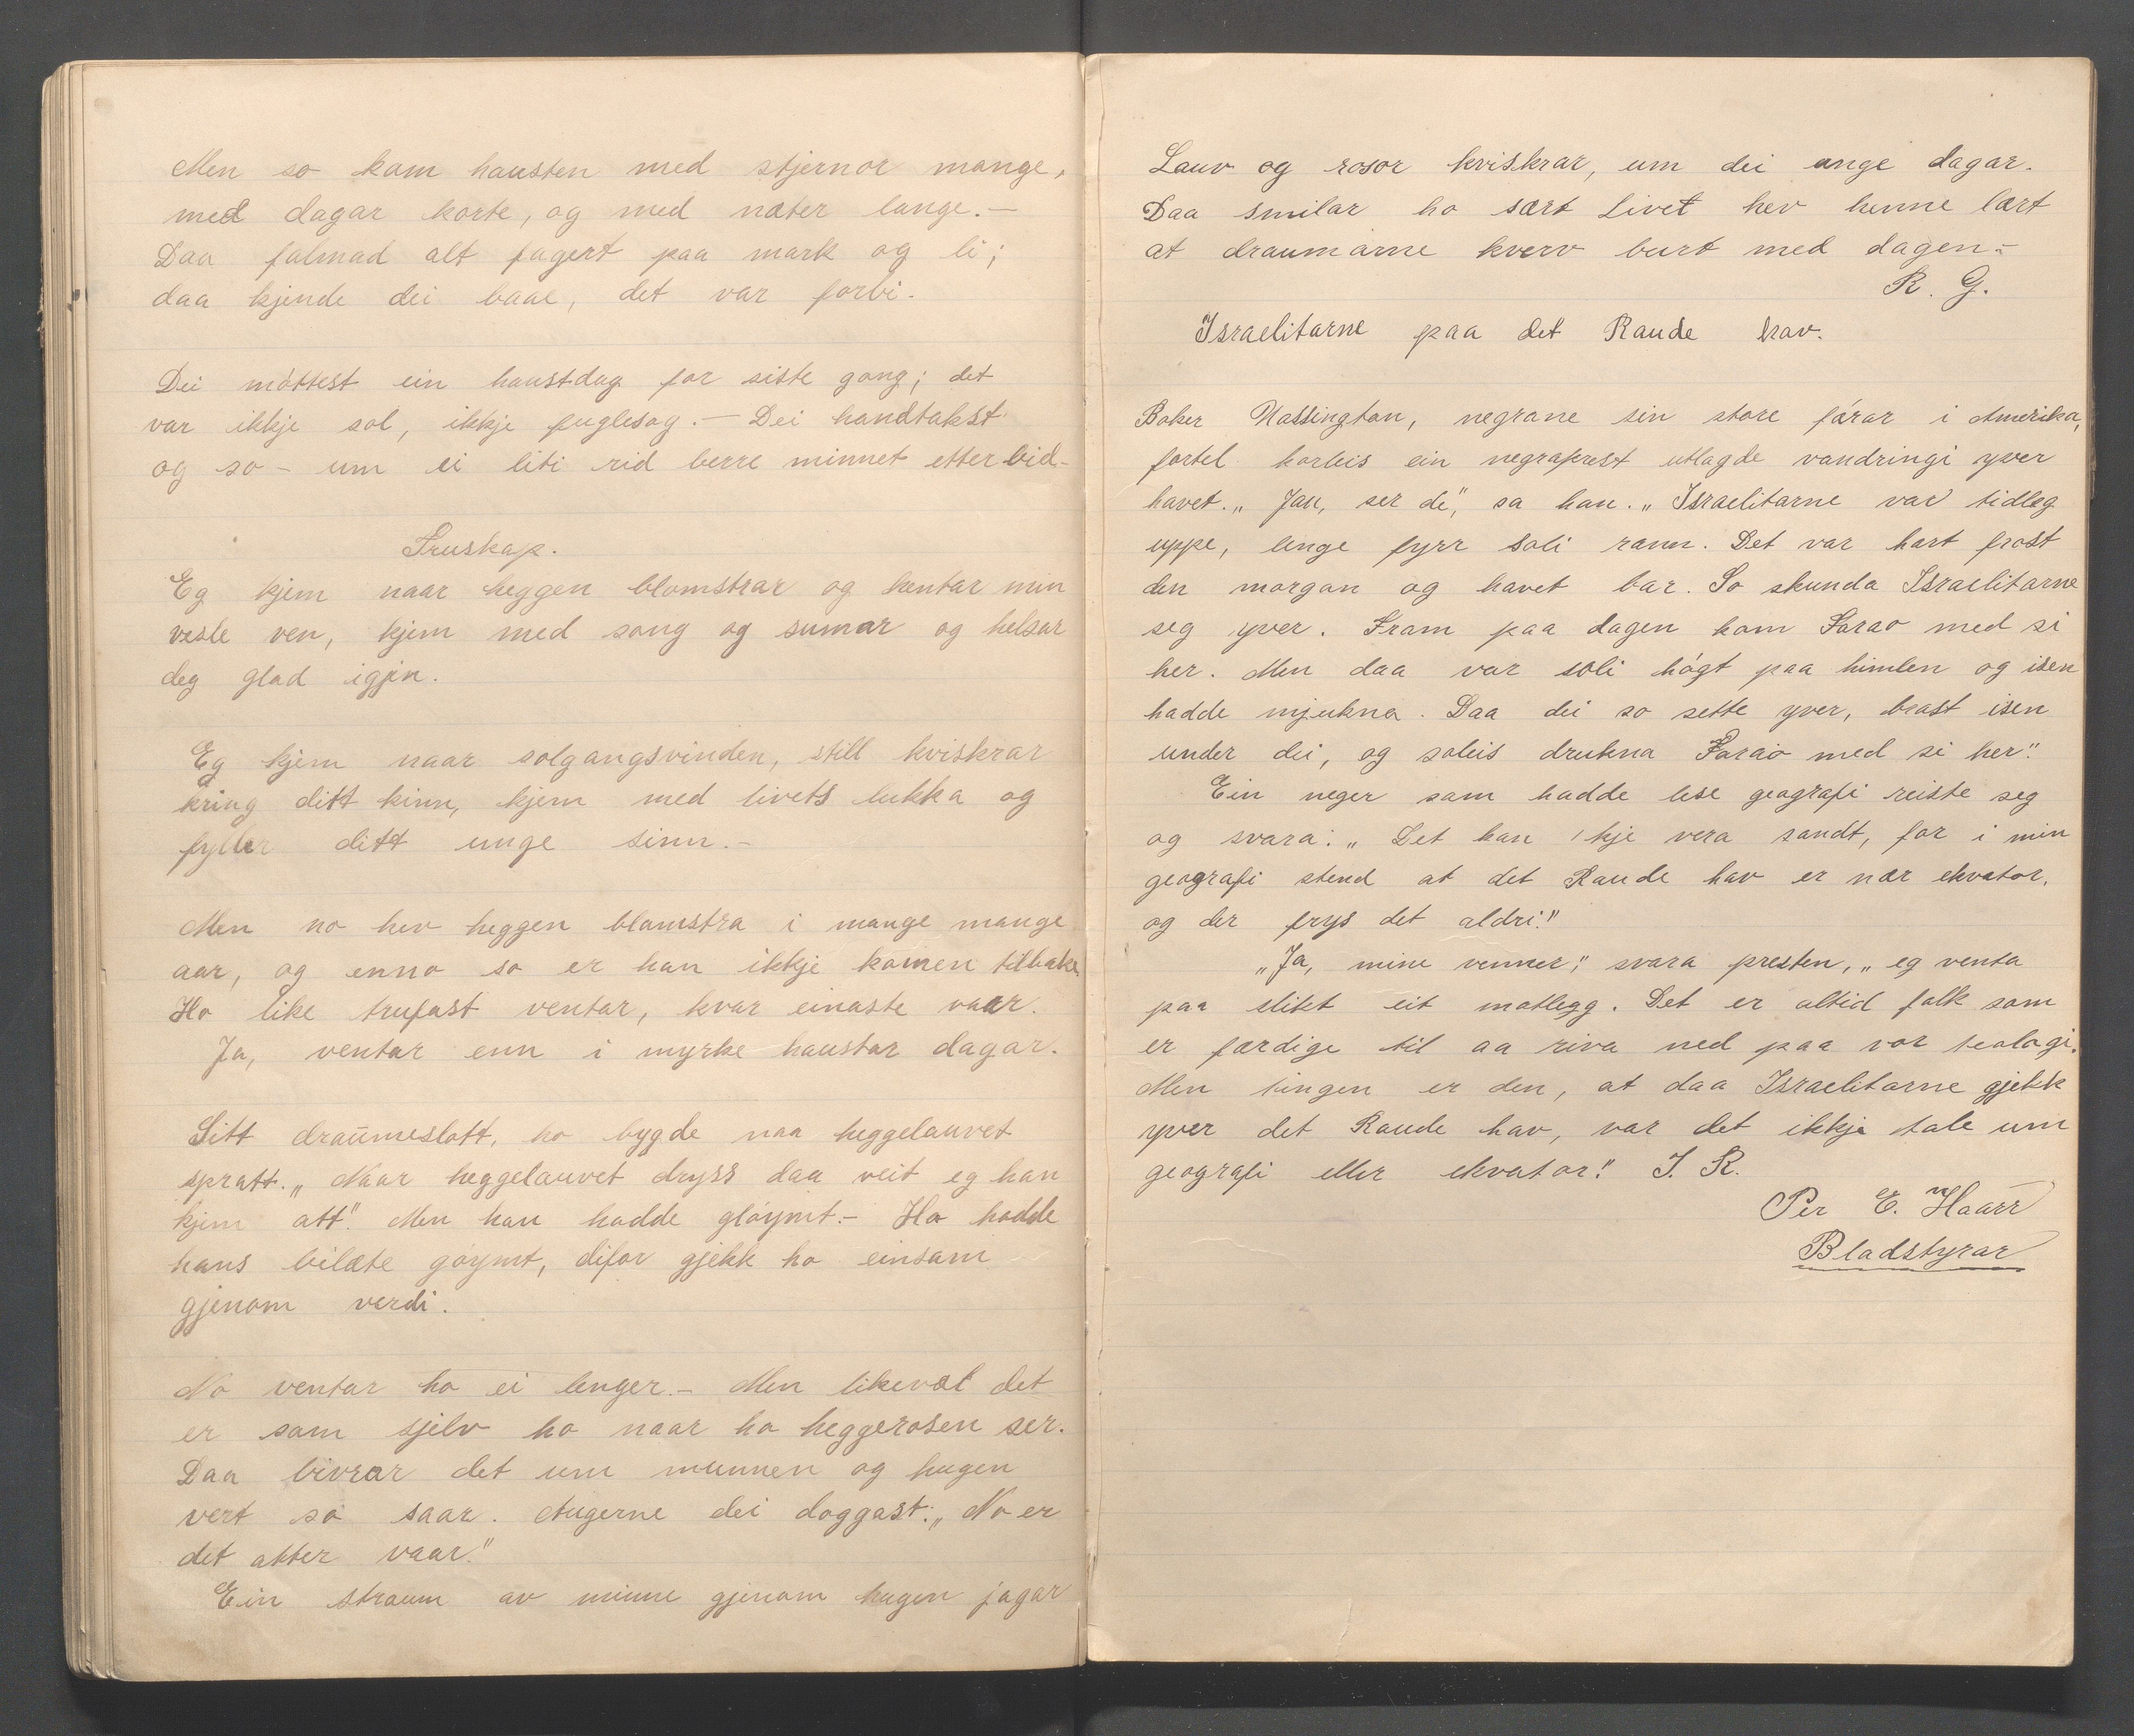 Men so kom hausten med stjernor mange,
med dagar korte, og med næter lange.-
Daa falmad alt fagert paa mark og li;
daa kjende dei baae, det var forbi.
Dei móttest ein haustdag for siste gong; det
var ikkje sol, ikkje fuglesog.- Dei handtakst
og so - um ei liti rid berre minnet etter bid-
Truskap.
Eg kjem naar heggen blomstrar og hentar min
vesle ven, kjem med song og sumar og helsar
deg glad igjen.
Eg kjem naar solgangsvinden, still kviskrar
kring ditt kinn, kjem med livets lukka og
fyller ditt unge sinn.-
Men no hev heggen blomstra i mange mange
aar, og enno so er han ikkje komen tilbake
Ho like trufast ventar, kvar einaste vaar.
Ja, ventar enn i myrke haustar dagar.
Sitt draumeslott, ho bygde naa heggelauvet
spratt. „Naar heggelauvet dryss daa veit eg han
kjem att." Men han hadde glóymt.- Ho hadde
hans bilæte góymt, difor gjekk ho einsam
gjenom verdi.
No ventar ho ei lenger.- Men likevæl det
er som sjelv ho naar ho heggerosen ser.
Daa bivrar det um munnen og hugen
vert so saar. Augerne dei doggast: „No er
det atter vaar."
Ein straum av minne gjenom hugen jagar
Lauv og rosor kviskrar, um dei unge dagar.
Daa smilar ho sært Livet hev henne lært
at draumarne kverv burt med dagen.-
R. G.
Israelitarne paa det Raude hav.
Boker Wassington, negrane sin store fórar i Amerika,
fortel korleis ein negraprest utlagde vandringi yver
havet. „Jau, ser de", sa han. „Israelitarne var tidleg
uppe, lenge fyrr soli rann. Det var hart frost
den morgon og havet bar. So skunda Israelitarne
seg yver. Fram paa dagen kom Farao med si
her. Men daa var soli hógt paa himlen og isen
hadde mjukna. Daa dei so sette yver, brast isen
under dei, og soleis drukna Farao med si her."
Ein neger som hadde lese geografi reiste seg
og svara: „Det kan 'kje vera sandt, for i min
geografi stend at det Raude hav er nær ekvator,
og der frys det aldri."
„Ja, mine venner", svara presten, „eg venta
paa slikt eit motlegg. Det er altid folk som
er færdige til aa riva ned paa vor teologi.
Men tingen er den, at daa Israelitarne gjekk
yver det Raude hav, var det ikkje tale um
geografi eller ekvator." I. R.
Per E. Haarr
Bladstyrar